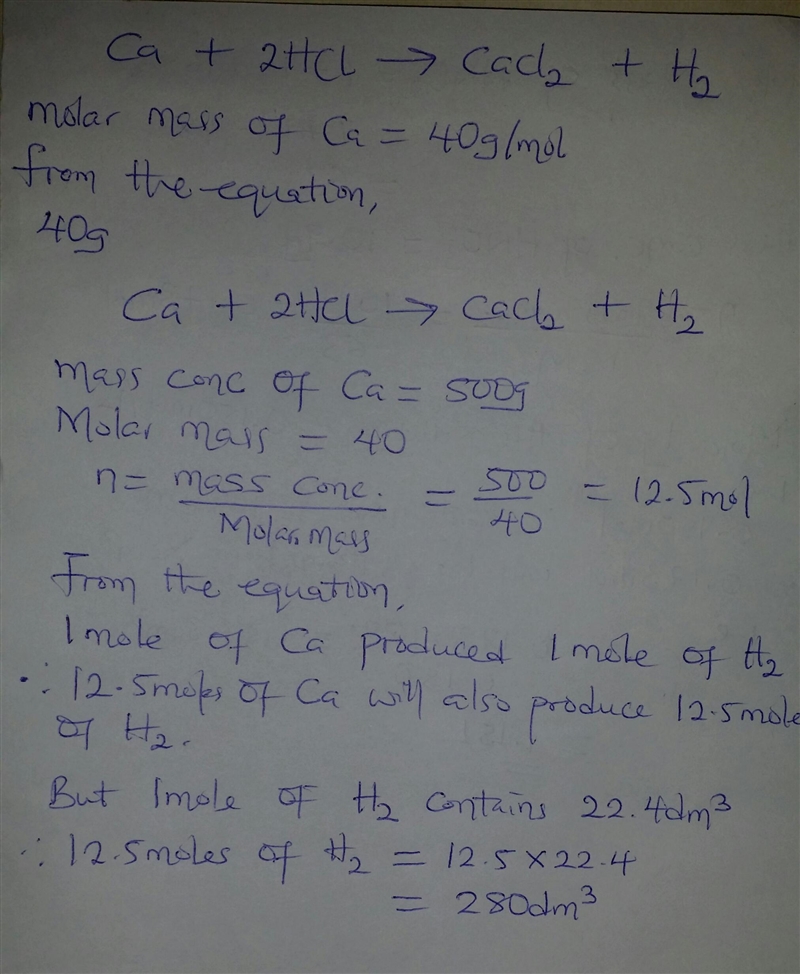 Ca + 2HCl → CaCl₂ + H₂
Molar mass of Ca = 40g/mol
From the equation,
40g
Ca + 2HCl → CaCl₂ + H₂
Mass conc of Ca = 500g
Molar mass = 40
n = mass conc. / Molar mass = 500 / 40 = 12.5mol
From the equation,
1mole of Ca produced 1mole of H₂
∴ 12.5moles of Ca will also produce 12.5mole
of H₂.
But 1mole of H₂ contains 22.4dm³
∴ 12.5moles of H₂ = 12.5 × 22.4
= 280dm³